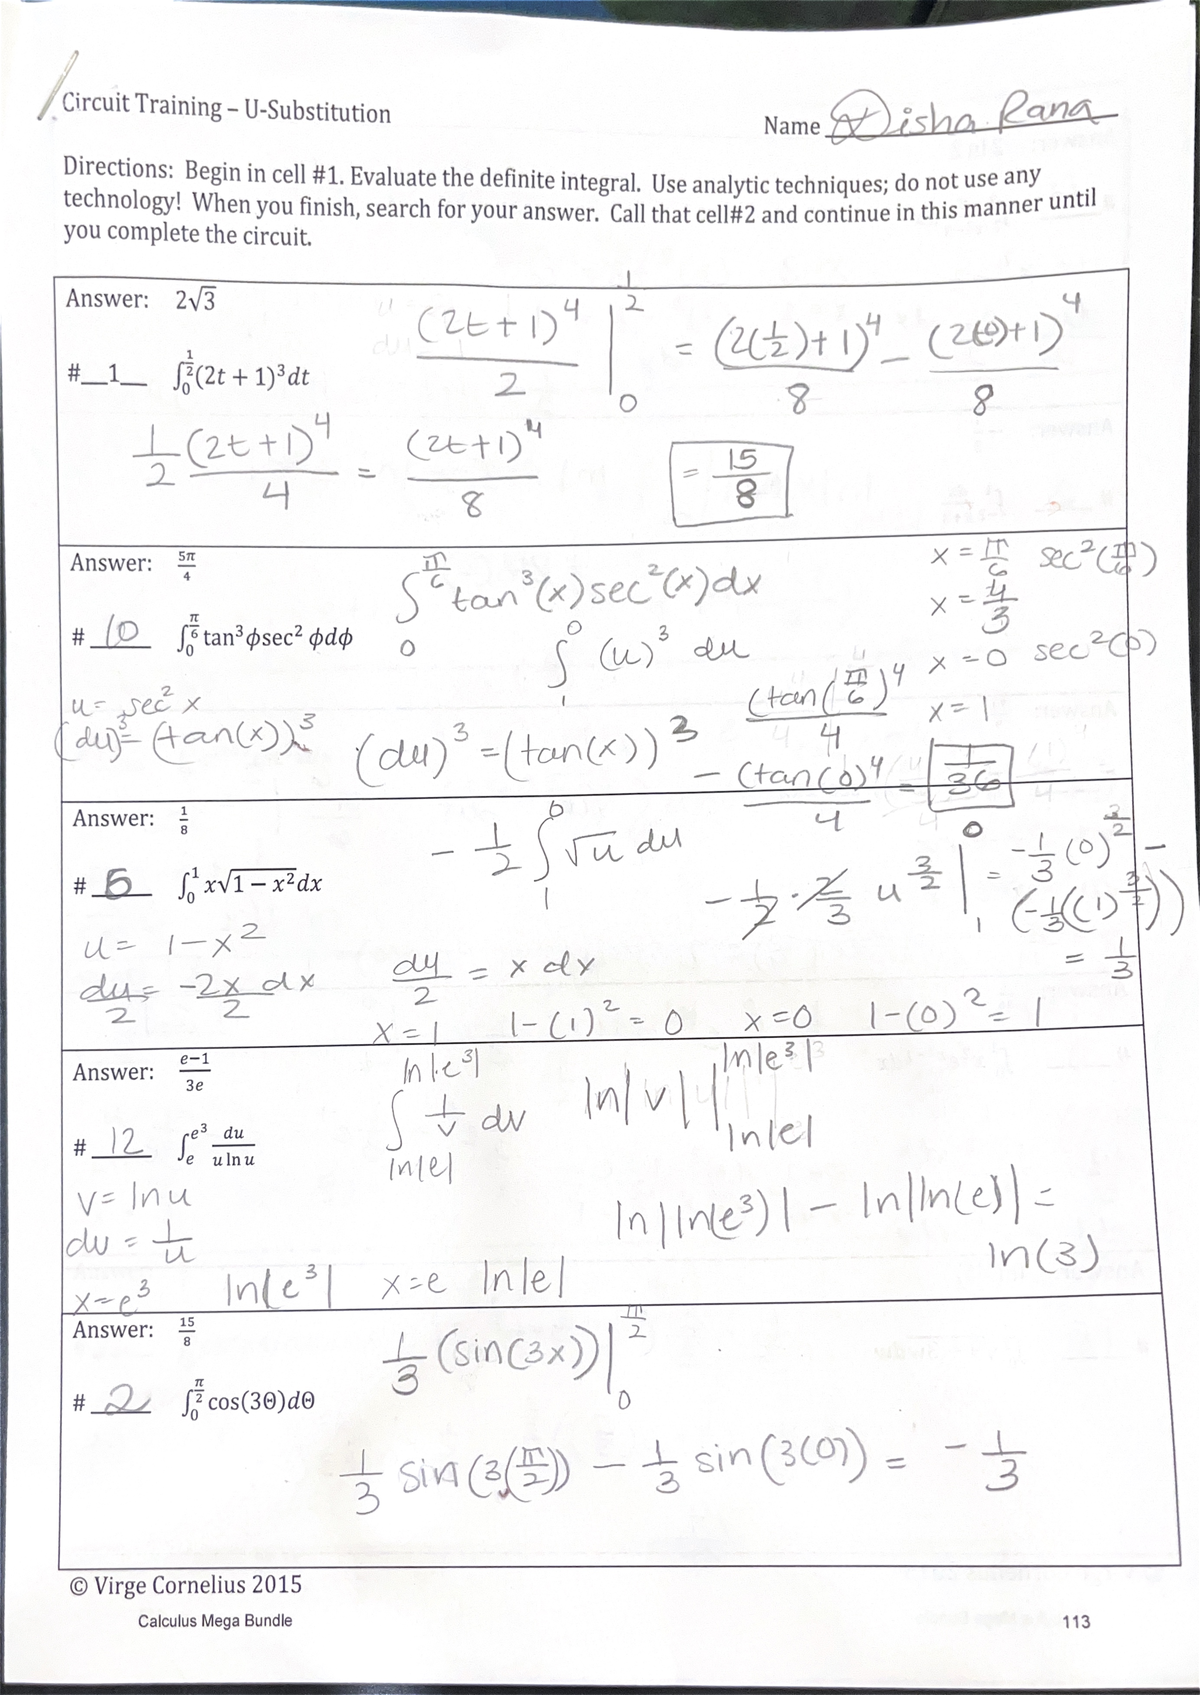 Circuit Training – U-Substitution
Name Disha Rana
Directions: Begin in cell #1. Evaluate the definite integral. Use analytic techniques; do not use any
technology! When you finish, search for your answer. Call that cell#2 and continue in this manner until
you complete the circuit.
Answer: 2√3
(2t+1)^4/2 |_0^{1/2} = (2(1/2)+1)^4/8 − (2(0)+1)^4/8
#__1__ ∫_0^{1/2}(2t + 1)³dt
1/2 (2t+1)^4/4 = (2t+1)^4/8
= 15/8
Answer: 5π/4
∫_0^{π/6} tan³(x)sec²(x)dx
x = π/6 sec²(π/6)
x = 4/3
# 10 ∫_0^{π/6} tan³ϕsec² ϕdϕ
∫_1^0 (u)³ du
x = 0 sec²(0)
x = 1
u = sec² x
(du)³ = (tan(x))³
(du)³ = (tan(x))³
(tan(π/6)^4/4
− (tan(0)^4/4 = 1/36
Answer: 1/8
− 1/2 ∫_1^0 √u du
# 6 ∫_0^1 x√1 − x²dx
− 1/2 · 2/3 u^{3/2} |_1^0 = −1/3(0)^{3/2} −
(−1/3((1)^{3/2}))
= 1/3
u = 1−x²
du/2 = −2x/2 dx
du/2 = x dx
x=1 1−(1)² = 0 x=0 1−(0)² = 1
Answer: e−1/3e
∫_{ln|e|}^{ln|e³|} 1/v dv
ln|v| |_{ln|e|}^{ln|e³|}
# 12 ∫_e^{e³} du/u ln u
v = ln u
dv = 1/u
ln|ln(e³)| − ln|ln(e)| =
ln(3)
x=e³ ln|e³| x=e ln|e|
Answer: 15/8
1/3 (sin(3x))|_0^{π/2}
# 2 ∫_0^{π/2} cos(3Θ)dΘ
1/3 sin(3(π/2)) − 1/3 sin(3(0)) = − 1/3
© Virge Cornelius 2015
Calculus Mega Bundle
113